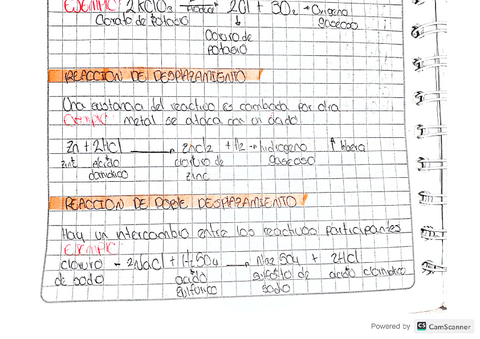 EJEMPLO: 2KClO3 2Cl + 3O2 → Oxigeno
Clorato de potasio ↓ gaseoso
Cloruro de
potasio
REACCION DE DESPLAZAMIENTO
Una sustancia del reactivo es cambiada por otra
Ejemplo metal se ataca con un ácido.
Zn + 2HCl → ZnCl2 + H2 → hidrogeno ↑ libera
zinc ácido cloruro de gaseoso
zinc
REACCION DE DOBLE DESPLAZAMIENTO
Hay un intercambio entre los reactivos participantes
Ejemplo:
cloruro - 2NaCl + H2SO4 → Na2SO4 + 2HCl
de sodio ácido sulfato de ácido clorhidrico
sulfurico sodio
Powered by CS CamScanner